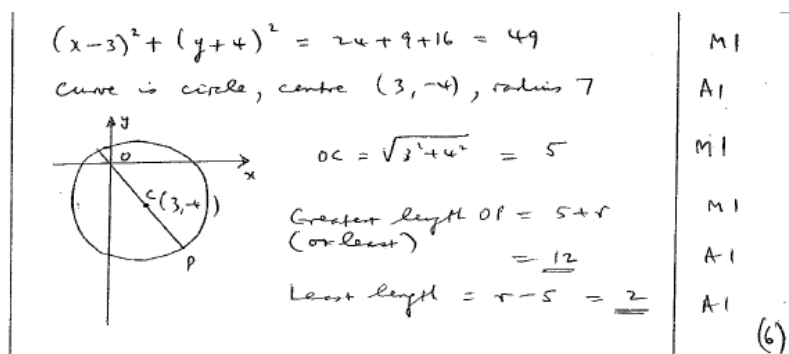 (x-3)² + (y+4)² = 24 + 9 + 16 = 49 M1
Curve is circle, centre (3, -4), radius 7 A1
y
O
x
C(3,-4)
P
OC = √3²+4² = 5 M1
Greatest length OP = 5+r M1
(or least)
= 12 A1
Least length = r-5 = 2 A1
(6)